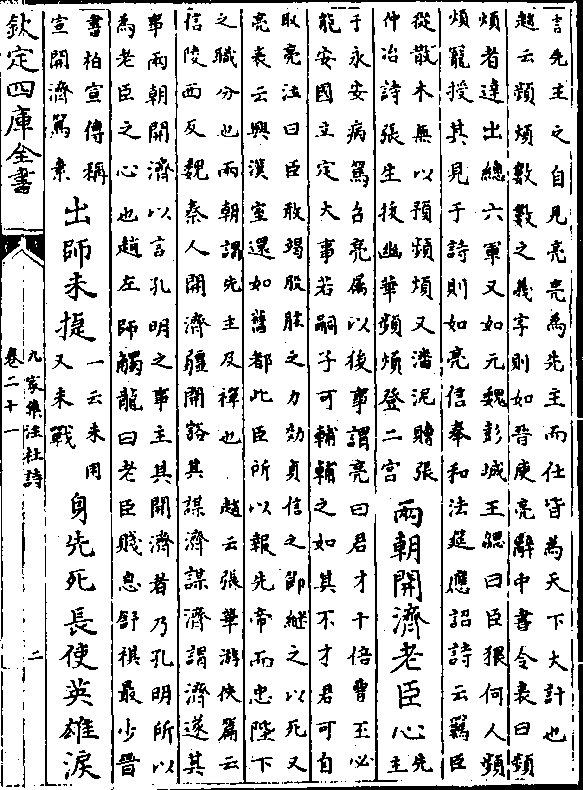 言先主之自見亮亮為先主而仕皆為天下大計也
趙云頻煩數數之義字則如晉庾亮辭中書令表曰頻
煩者達出總六軍又如元魏彭城王勰曰臣猥何人頻
煩寵授其見于詩則如亮信奉和法筵應詔詩云羈臣
從散木無以預頻煩又潘泥贈張
仲治詩張生拔幽華頻煩登二宮
兩朝開濟老臣心
先
主
于永安病篤召亮属以後事謂亮曰君才十倍曹丕必
能安國主定大事若嗣子可輔輔之如其不才君可自
取亮泣曰臣敢竭股肱之力効貞信之節繼之以死又
亮表云興漢室還如舊都此臣所以報先帝而忠陛下
之職分也兩朝謂先主及禪也 趙云張華游俠篇云
信陵西反魏秦人開濟疆開豁其謀濟謀濟謂濟遂其
事兩朝開濟以言孔明之事主其開濟者乃孔明所以
為老臣之心也趙左師觸龍曰老臣賤息舒祺最少晉
書柏宣傳稱
宣開濟篤素
出師未捷
一云未用
又未戰
身先死長使英雄淚
欽定四庫全書
九家集注杜詩
卷二十一
二